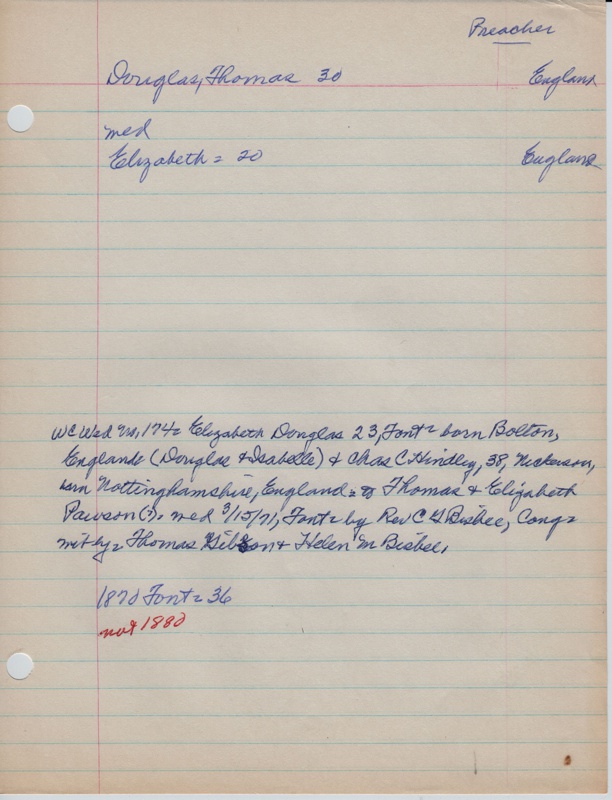 Preacher
Douglas, Thomas 30 England
med
Elizabeth = 20 England
WC Wed no, 174= Elizabeth Douglas 23, Font= born Bolton,
England= (Douglas & Isabelle) & Chas C Hindley, 38, Nickerson,
born Nottinghamshire, England= to Thomas & Elizabeth
Pawson (?)= med 3/15/71, Font= by Rev C G Bisbee, Cong=
wit by= Thomas Gibson & Helen M Bisbee,
1870 Font= 36
not 1880